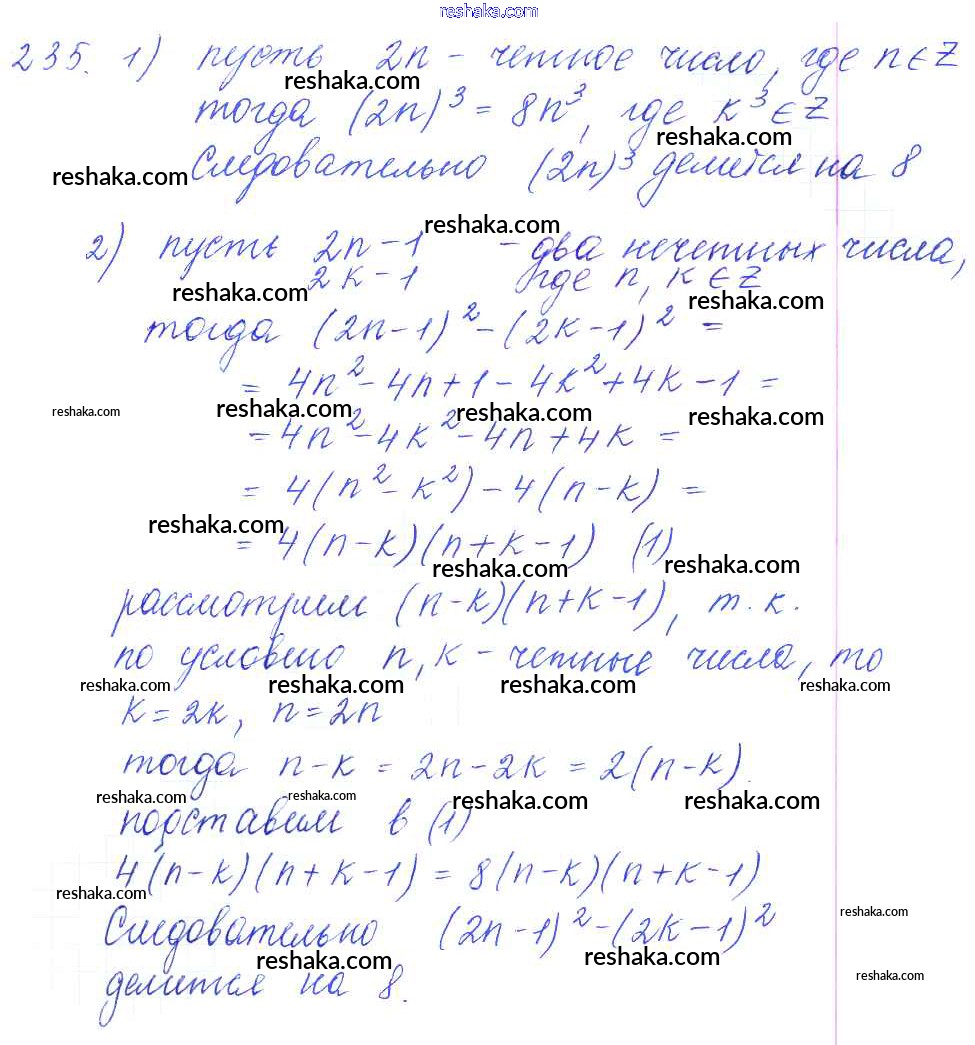 reshaka.com
235. 1) пусть 2n - четное число, где n ∈ Z
reshaka.com
тогда (2n)³ = 8n³, где k³ ∈ Z
reshaka.com
reshaka.com Следовательно (2n)³ делится на 8
reshaka.com
2) пусть 2n-1 - два нечетных числа,
2k-1 где n, k ∈ Z
reshaka.com reshaka.com
тогда (2n-1)² - (2k-1)² =
= 4n² - 4n + 1 - 4k² + 4k - 1 =
reshaka.com reshaka.com reshaka.com reshaka.com
= 4n² - 4k² - 4n + 4k =
= 4(n² - k²) - 4(n-k) =
reshaka.com
= 4(n-k)(n+k-1) (1)
reshaka.com reshaka.com
рассмотрим (n-k)(n+k-1), т.к.
по условию n, k - четные числа, то
reshaka.com reshaka.com reshaka.com reshaka.com
k = 2k, n = 2n
тогда n-k = 2n-2k = 2(n-k).
reshaka.com reshaka.com reshaka.com reshaka.com
подставим в (1)
4(n-k)(n+k-1) = 8(n-k)(n+k-1)
reshaka.com reshaka.com
Следовательно (2n-1)² - (2k-1)²
reshaka.com reshaka.com reshaka.com
делится на 8.